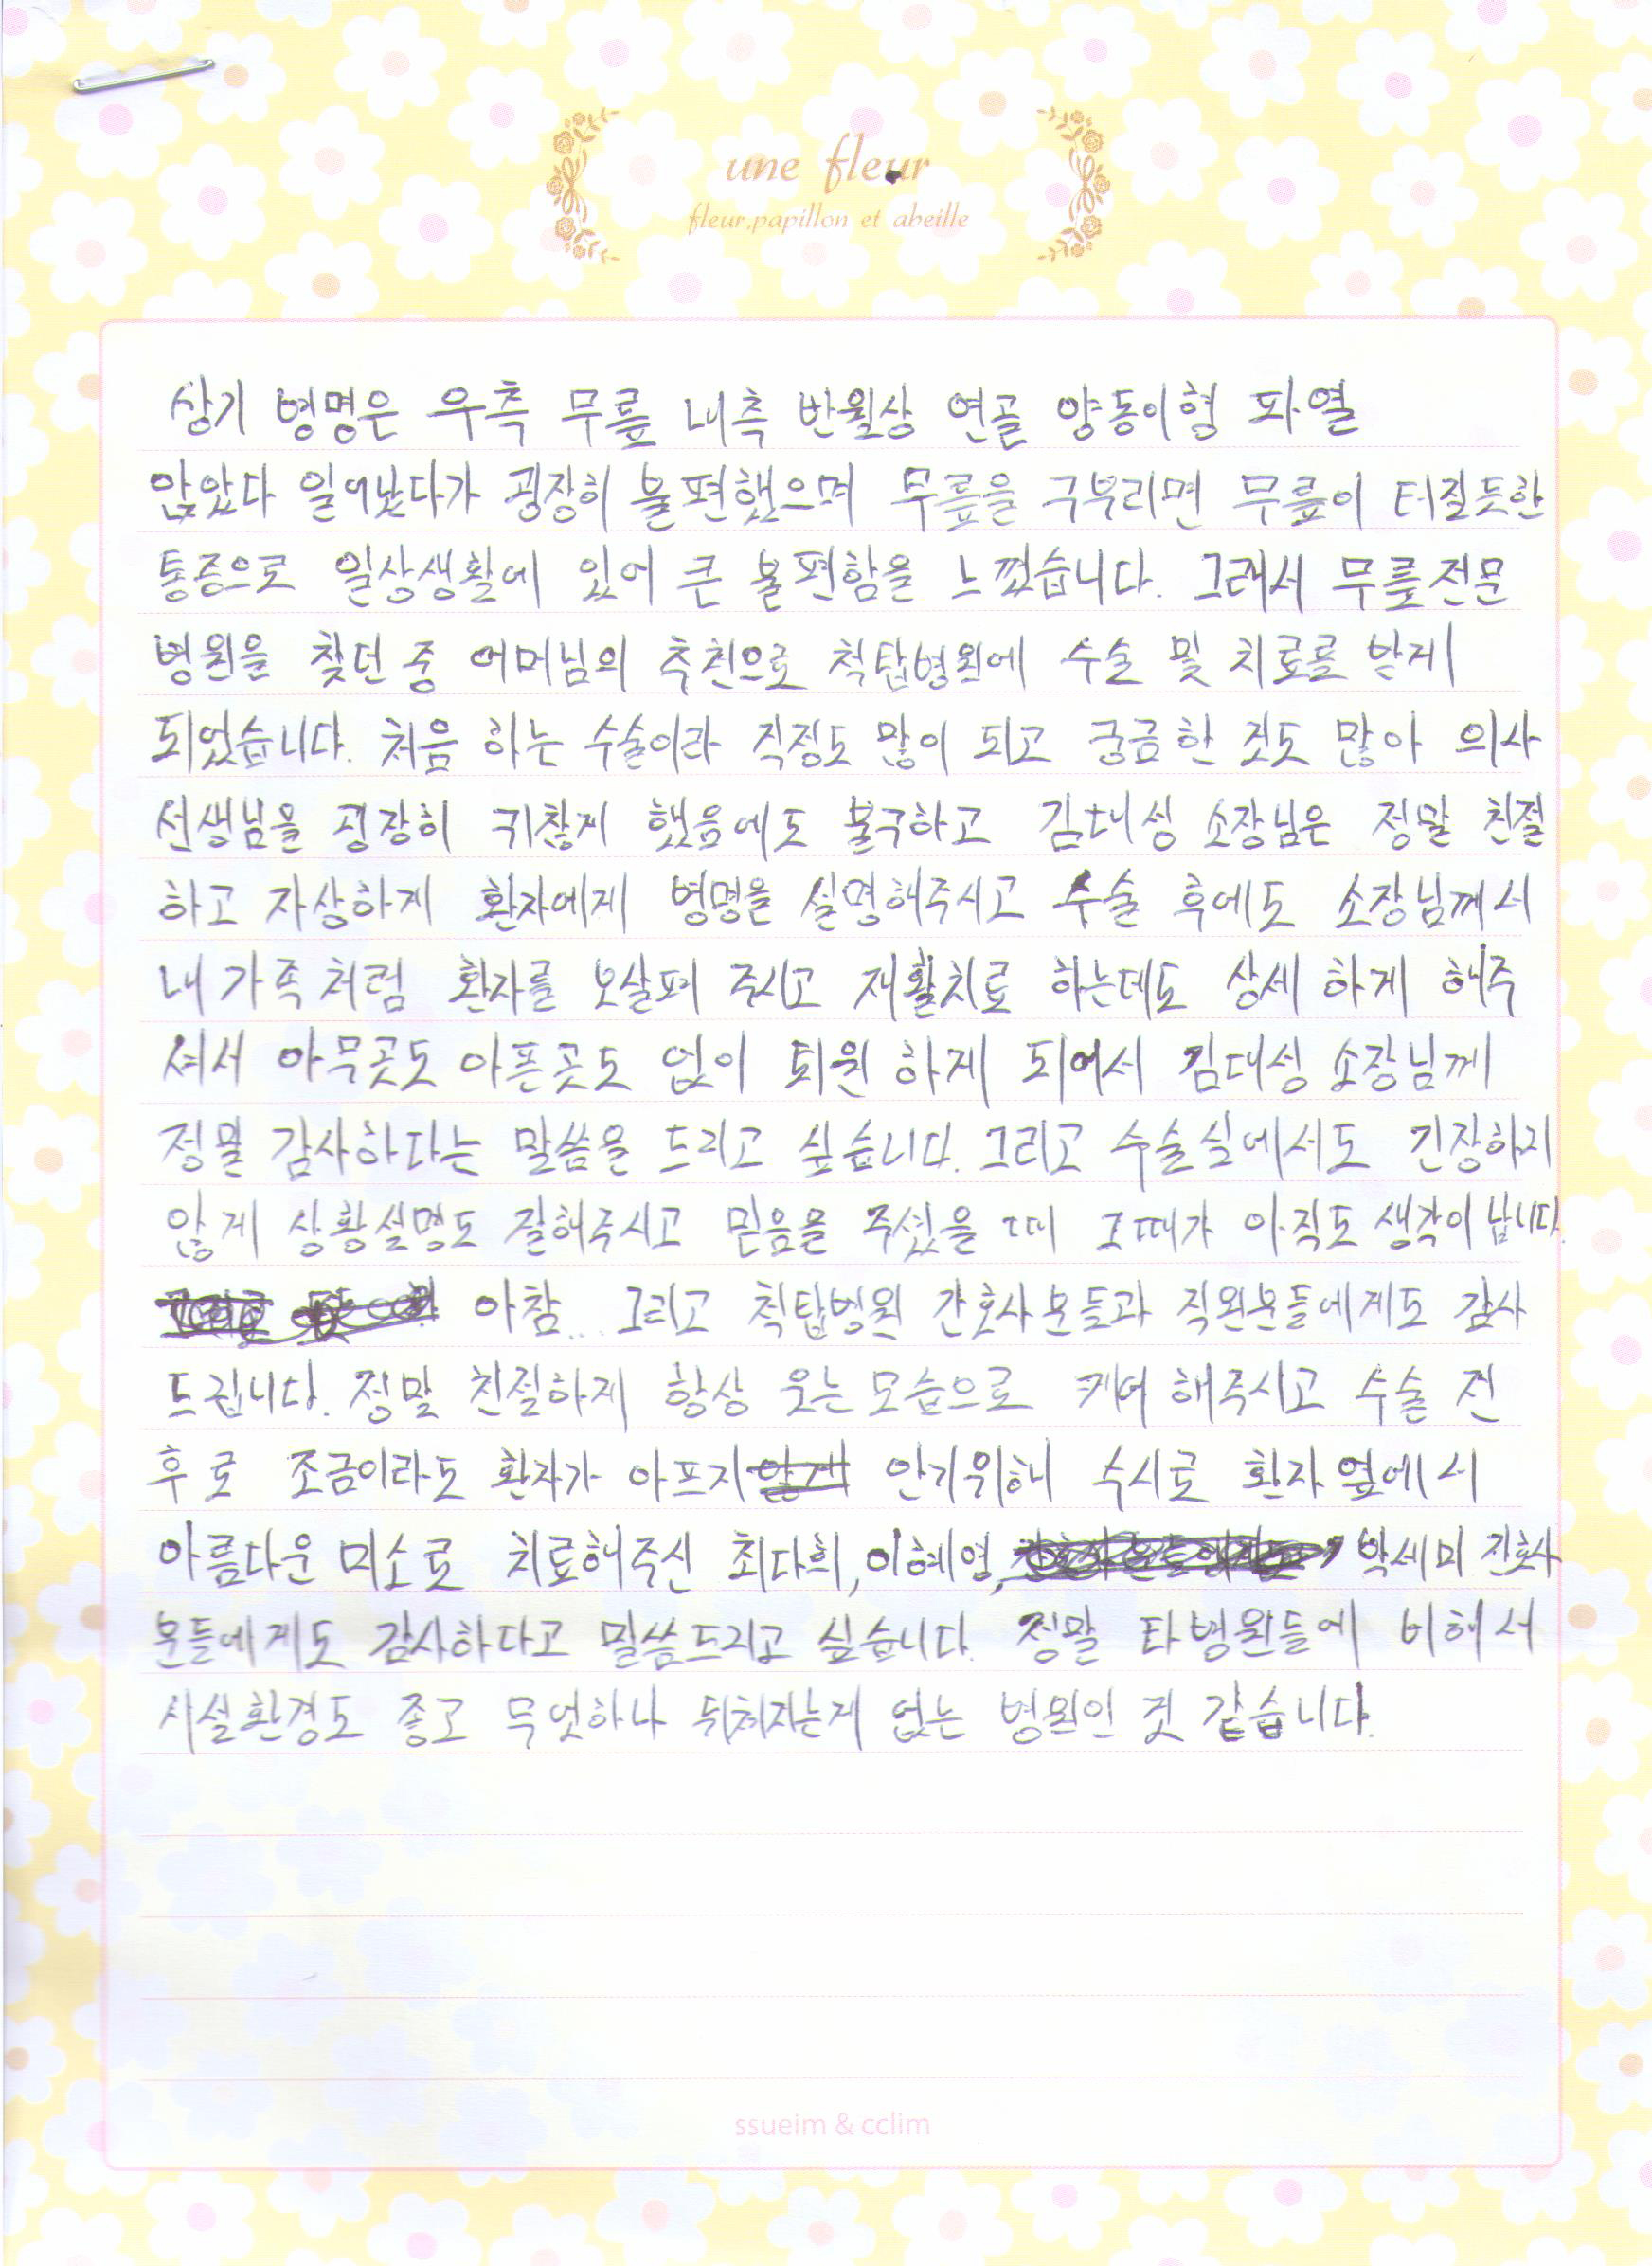 une fleur
fleur, papillon et abeille
상기 병명은 우측 무릎 내측 반월상 연골 양동이형 파열
앉았다 일어났다가 굉장히 불편했으며 무릎을 구부리면 무릎이 터질듯한
통증으로 일상생활에 있어 큰 불편함을 느꼈습니다. 그래서 무릎전문
병원을 찾던 중 어머님의 추천으로 척탑병원에 수술 및 치료를 받게
되었습니다. 처음 하는 수술이라 걱정도 많이 되고 궁금한 것도 많아 의사
선생님을 굉장히 귀찮게 했음에도 불구하고 김대성 소장님은 정말 친절
하고 자상하게 환자에게 병명을 설명해주시고 수술 후에도 소장님께서
내 가족처럼 환자를 보살펴 주시고 재활치료 하는데도 상세 하게 해주
셔서 아무곳도 아픈곳도 없이 퇴원 하게 되어서 김대성 소장님께
정말 감사하다는 말씀을 드리고 싶습니다. 그리고 수술실에서도 긴장하지
않게 상황설명도 잘해주시고 믿음을 주셨을 때 그때가 아직도 생각이 납니다.
아참... 그리고 척탑병원 간호사분들과 직원분들에게도 감사
드립니다. 정말 친절하게 항상 웃는모습으로 케어 해주시고 수술 전
후로 조금이라도 환자가 아프지 안기위해 수시로 환자 옆에서
아름다운 미소로 치료해주신 최다희, 이혜영, 박세미 간호사
분들에게도 감사하다고 말씀드리고 싶습니다. 정말 타병원들에 비해서
시설환경도 좋고 무엇하나 뒤쳐지는게 없는 병원인 것 같습니다.
ssueim & cclim